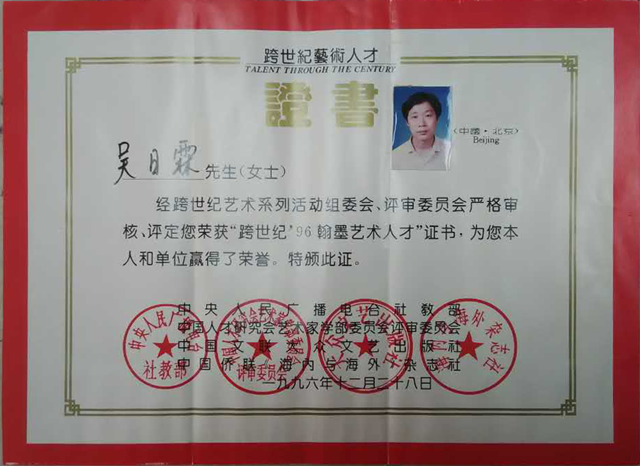 跨世紀藝術人才
TALENT THROUGH THE CENTURY
證書
(中國·北京)
Beijing
吴日霖 先生(女士)
经跨世纪艺术系列活动组委会、评审委员会严格审
核、评定您荣获“跨世纪’96翰墨艺术人才”证书,为您本
人和单位赢得了荣誉。特颁此证。
中央人民广播电台社教部
中国人才研究会艺术家学部委员会评审委员会
中国文联大众文艺出版社
中国侨联海内与海外杂志社
一九九六年十二月二十八日
社教部
评审委员会